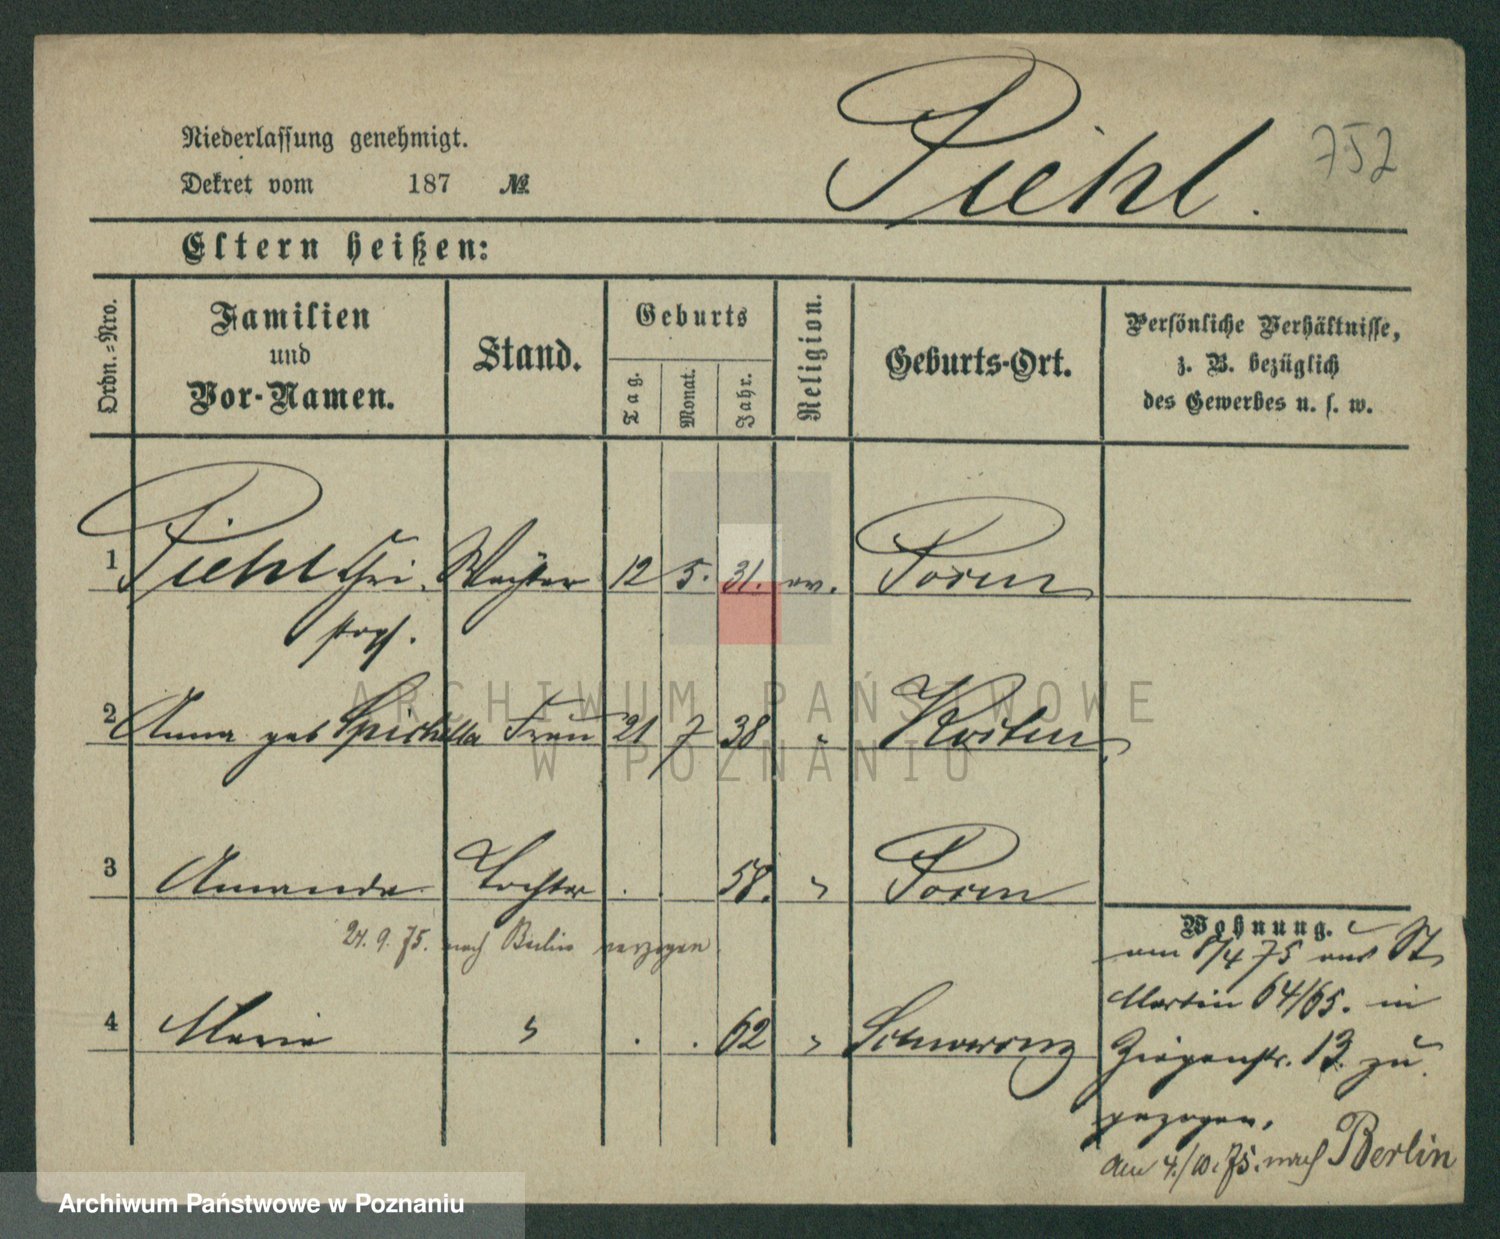 Niederlassung genehmigt.
Dekret vom 187 №
Piehl.
752
Eltern heißen:
Ordn.=Nro.
Familien
und
Vor-Namen.
Stand.
Geburts
Tag.
Monat.
Jahr.
Religion.
Geburts-Ort.
Persönliche Verhältnisse,
z. B. bezüglich
des Gewerbes u. s. w.
1 Piehl Chri Wächter 12 5. 31. ev. Posen
stoph.
2 Anna geb Frau 21 7 38 " Kosten
3 Amanda Tochter . . 58. " Posen
24. 9. 75. nach Berlin verzogen
4 Marie " . . 62 "
Wohnung.
am 8/4 75 aus St
Martin 64/65. in
Ziegenstr. 13. zu
gezogen.
am 4./10. 75. nach Berlin
ARCHIWUM PAŃSTWOWE
W POZNANIU
Archiwum Państwowe w Poznaniu